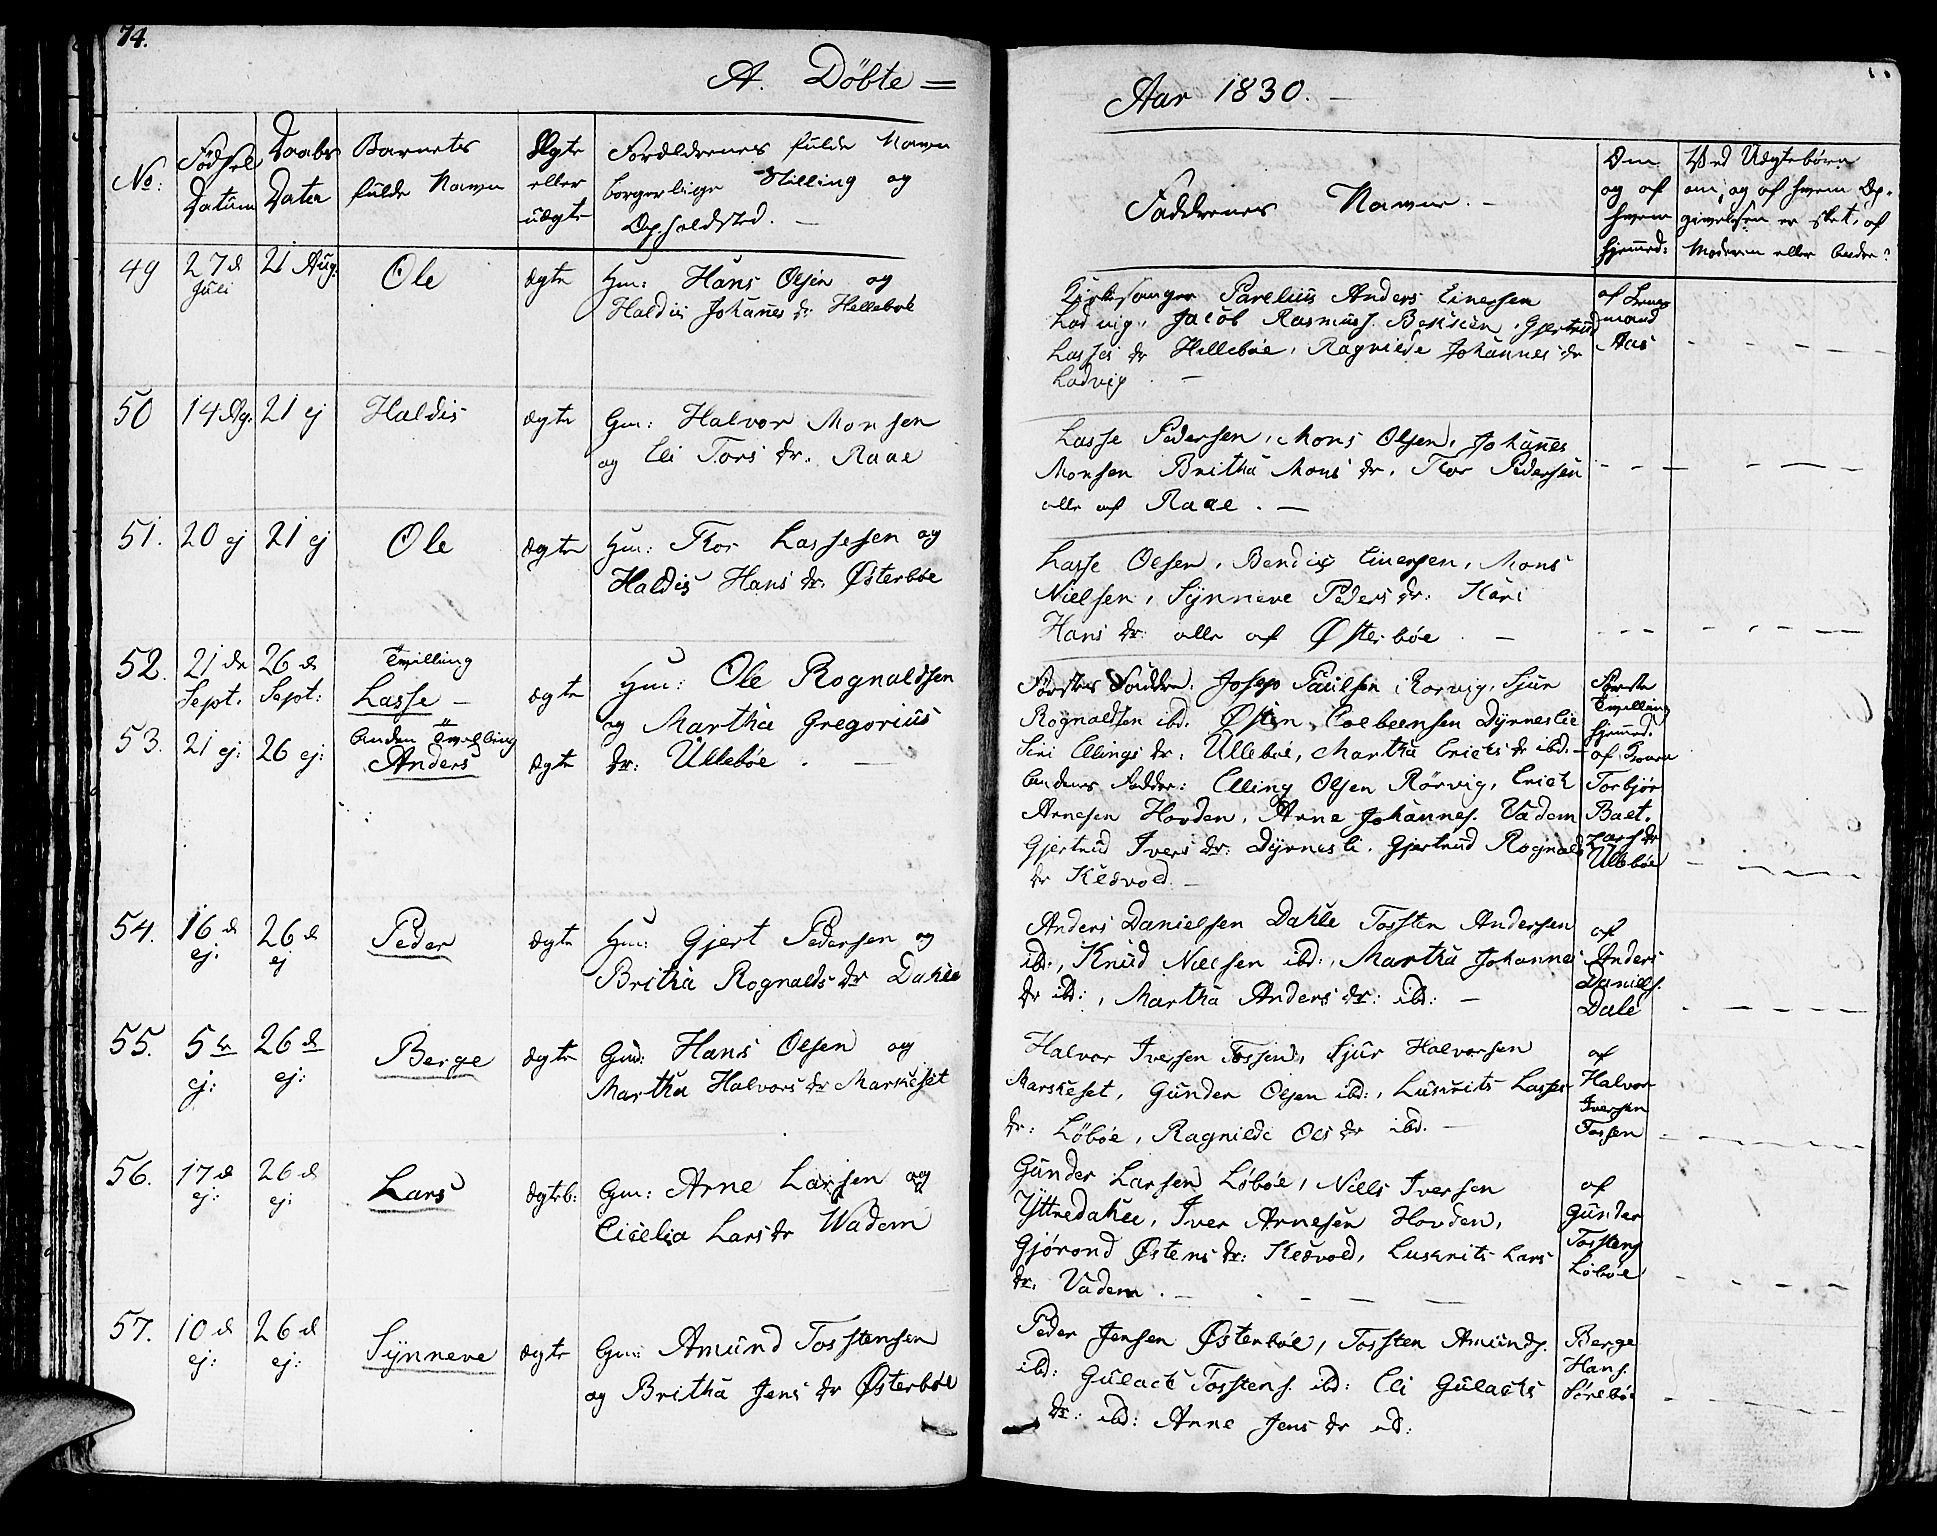 74.
A. Döbte =
Aar 1830. —
No:
Födsel
Datum
Daabs
Daten
Barnets
fulde Navn
Ægte
eller
uægte
Forældrenes fulde Navn
borgerlige Stilling og
Opholdsted. —
Faddrenes Navne. —
Om
og af
hvem
hjemmed:
Ved Uægtebörn
om, og af hvem Op-
givelsen er sket, af
Moderen eller Andre?
49
27 d
Juli
21 Aug.
Ole
ægte
Gm: Hans Olsen og
Haldis Johannes dr Hellebøe
Kirkesanger Parelius Anders Einersen
Ladvig, Jacob Rasmuss. , Gjertrud
Lasses dr Hellebøe, Ragnilde Johannes dr
Ladvig. —
af
mand
Aas
50
14 Ag.
21 ej
Haldis
ægte
Gm: Halvor Monsen
og Eli Tors dr. Raae
Lasse Pedersen, Mons Olsen, Johanes
Monsen Britha Mons dr, Thor Pedersen
alle af Raae. —
51.
20 ej
21 ej
Ole
ægte
Gm: Thor Lassesen og
Haldis Hans dr. Østerbøe
Lasse Olsen, Bendix Einersen, Mons
Nielsen, Synneve Peders dr: Kari
Hans dr: alle af Østerbøe. —
52.
21 de
Sept.
26 d
Sept:
Tvilling
Lasse —
ægte
Gm: Ole Rognaldsen
og Martha Gregorius
dr: Ullebøe. —
53.
21 ej:
26 ej:
Anden Tvilling
Anders
ægte
Førstes Faddre. Josep Paulsen i Rørvig, Sjur
Rognaldsen ibd. Østen Colbeensen Dyrneslie
Siri Ellings dr, Ullebøe, Martha Ericks dr ibd. —
Andens Fadder: Elling Olsen Rørvig, Erick
Arnesen Hovden, Arne Johannes. Vadem
Gjertrud Ivers dr: Dyrnesli. Gjertrud Rognald
dr Kleevold. —
Første
Tvilling
hjemmed.
af Konen
Torbjør
Baet.
Lars dr
Ullebøe
54.
16 d
ej:
26 d
ej
Peder
ægte
Gm: Gjert Pedersen og
Britha Rognalds dr Dahle
Anders Danielsen Dahle Tosten Andersen
ibd:, Knud Nielsen ibd:, Martha Johannes
dr ibd:, Martha Anders dr: ibd: —
af
Anders
Daniels.
Dale
55.
5 te
ej:
26 d
ej:
Berge
ægte
Gm: Hans Olsen og
Martha Halvors dr Marskeset
Halvor Iversen Tossen, Sjur Halvorsen
Marskeset, Gunder Olsen ibd:, Luserits Lasses
dr: Løbøe, Ragnilde Ols dr ibd. —
af
Halvor
Iversen
Tossen
56.
17 d
ej:
26 d
ej:
Lars
ægteb:
Gm: Arne Larsen og
Cicelia Lars dr Wadem
Gunder Larsen Løbøe, Niels Iversen
Yttredahle, Iver Arnesen Hovden,
Gjørond Østens dr: Kleevold, Luserits Lars
dr: Vadem. —
af
Gunder
Tostens
Løbøe
57.
10 d
ej:
26 d
ej:
Synneve
ægte
Gm: Amund Tosstensen
og Britha Jens dr Østerbøe
Peder Jensen Østerbøe, Tossten Amunds.
ibd: Gulack Tosstens. ibd: Eli Gulacks
dr: ibd: Anne Jens dr ibd:
Berge
Hans.
Sørebøe